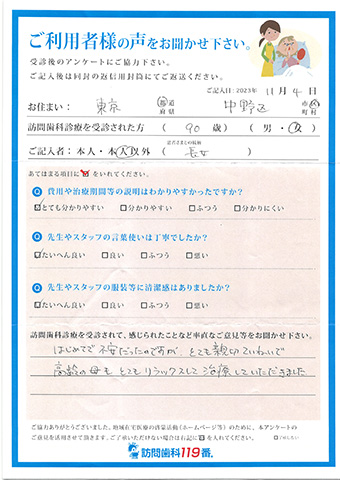 ご利用者様の声をお聞かせ下さい。
受診後のアンケートにご協力下さい。
ご記入後は同封の返信用封筒にてご返送ください。
ご記入日：2023年 11月 4日
お住まい： 東京 都道府県 中野区 市区町村
訪問歯科診療を受診された方 （ 90 歳）（ 男・女 ）
ご記入者：本人・本人以外 （ 長女 ）
あてはまる項目に☑をいれてください。
Q 費用や治療期間等の説明はわかりやすかったですか？
☑とても分かりやすい □分かりやすい □ふつう □分かりにくい
Q 先生やスタッフの言葉使いは丁寧でしたか？
☑たいへん良い □良い □ふつう □悪い
Q 先生やスタッフの服装等に清潔感はありましたか？
☑たいへん良い □良い □ふつう □悪い
訪問歯科診療を受診されて、感じられたことなど率直なご意見等をお聞かせ下さい。
はじめてで不安だったのですが、とても親切ていねいで
高齢の母も とてもリラックスして治療していただきました
ご協力ありがとうございました。地域在宅医療の啓蒙活動（ホームページ等）のために、本アンケートの
ご意見を活用させて頂きます。ご了承いただけない場合は右記に☑を入れてください。
訪問歯科119番®